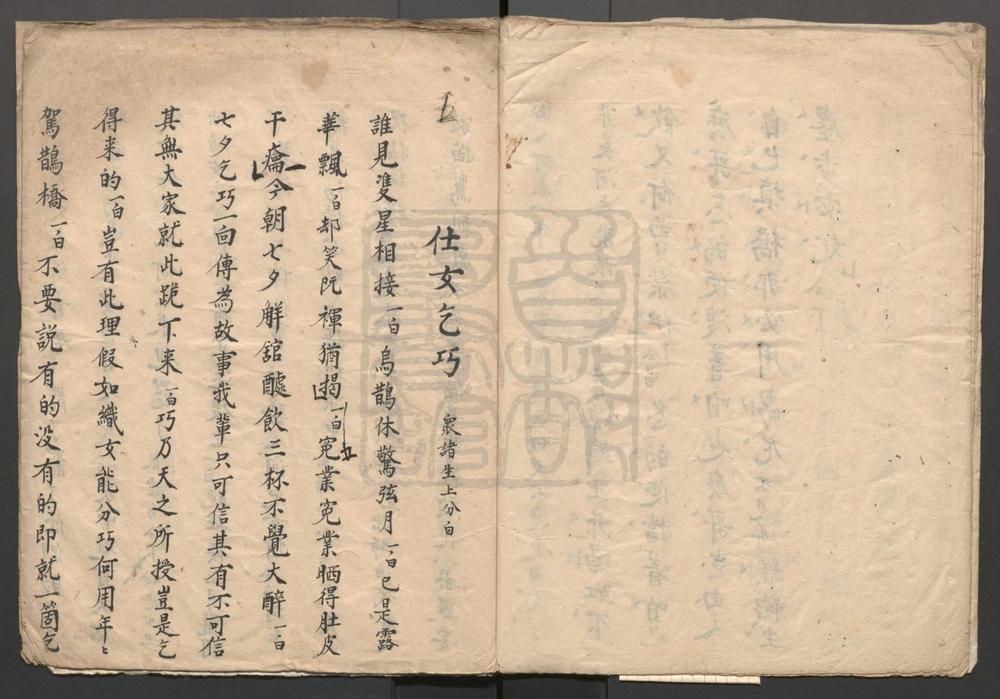 仕女乞巧 衆諸生上分白
誰見雙星相接一白烏鵲休驚弦月一白已是露
華飄一白却笑阮褌猶揭一白寃業寃業晒得肚皮
干癟今朝七夕觧舘醵飲三杯不覺大醉一白
七夕乞巧一向傳為故事我輩只可信其有不可信
其無大家就此跪下来一白巧乃天之所授豈是乞
得来的一白豈有此理假如織女能分巧何用年〻
駕鵲橋一白不要説有的没有的即就一箇乞